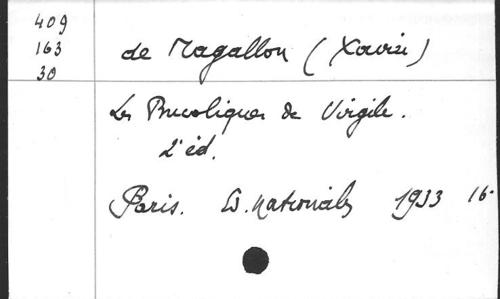 409
163
30
de Magallon (Xavier)
Les Bucoliques de Virgile.
2e éd.
Paris. Ed. nationales 1933 16-